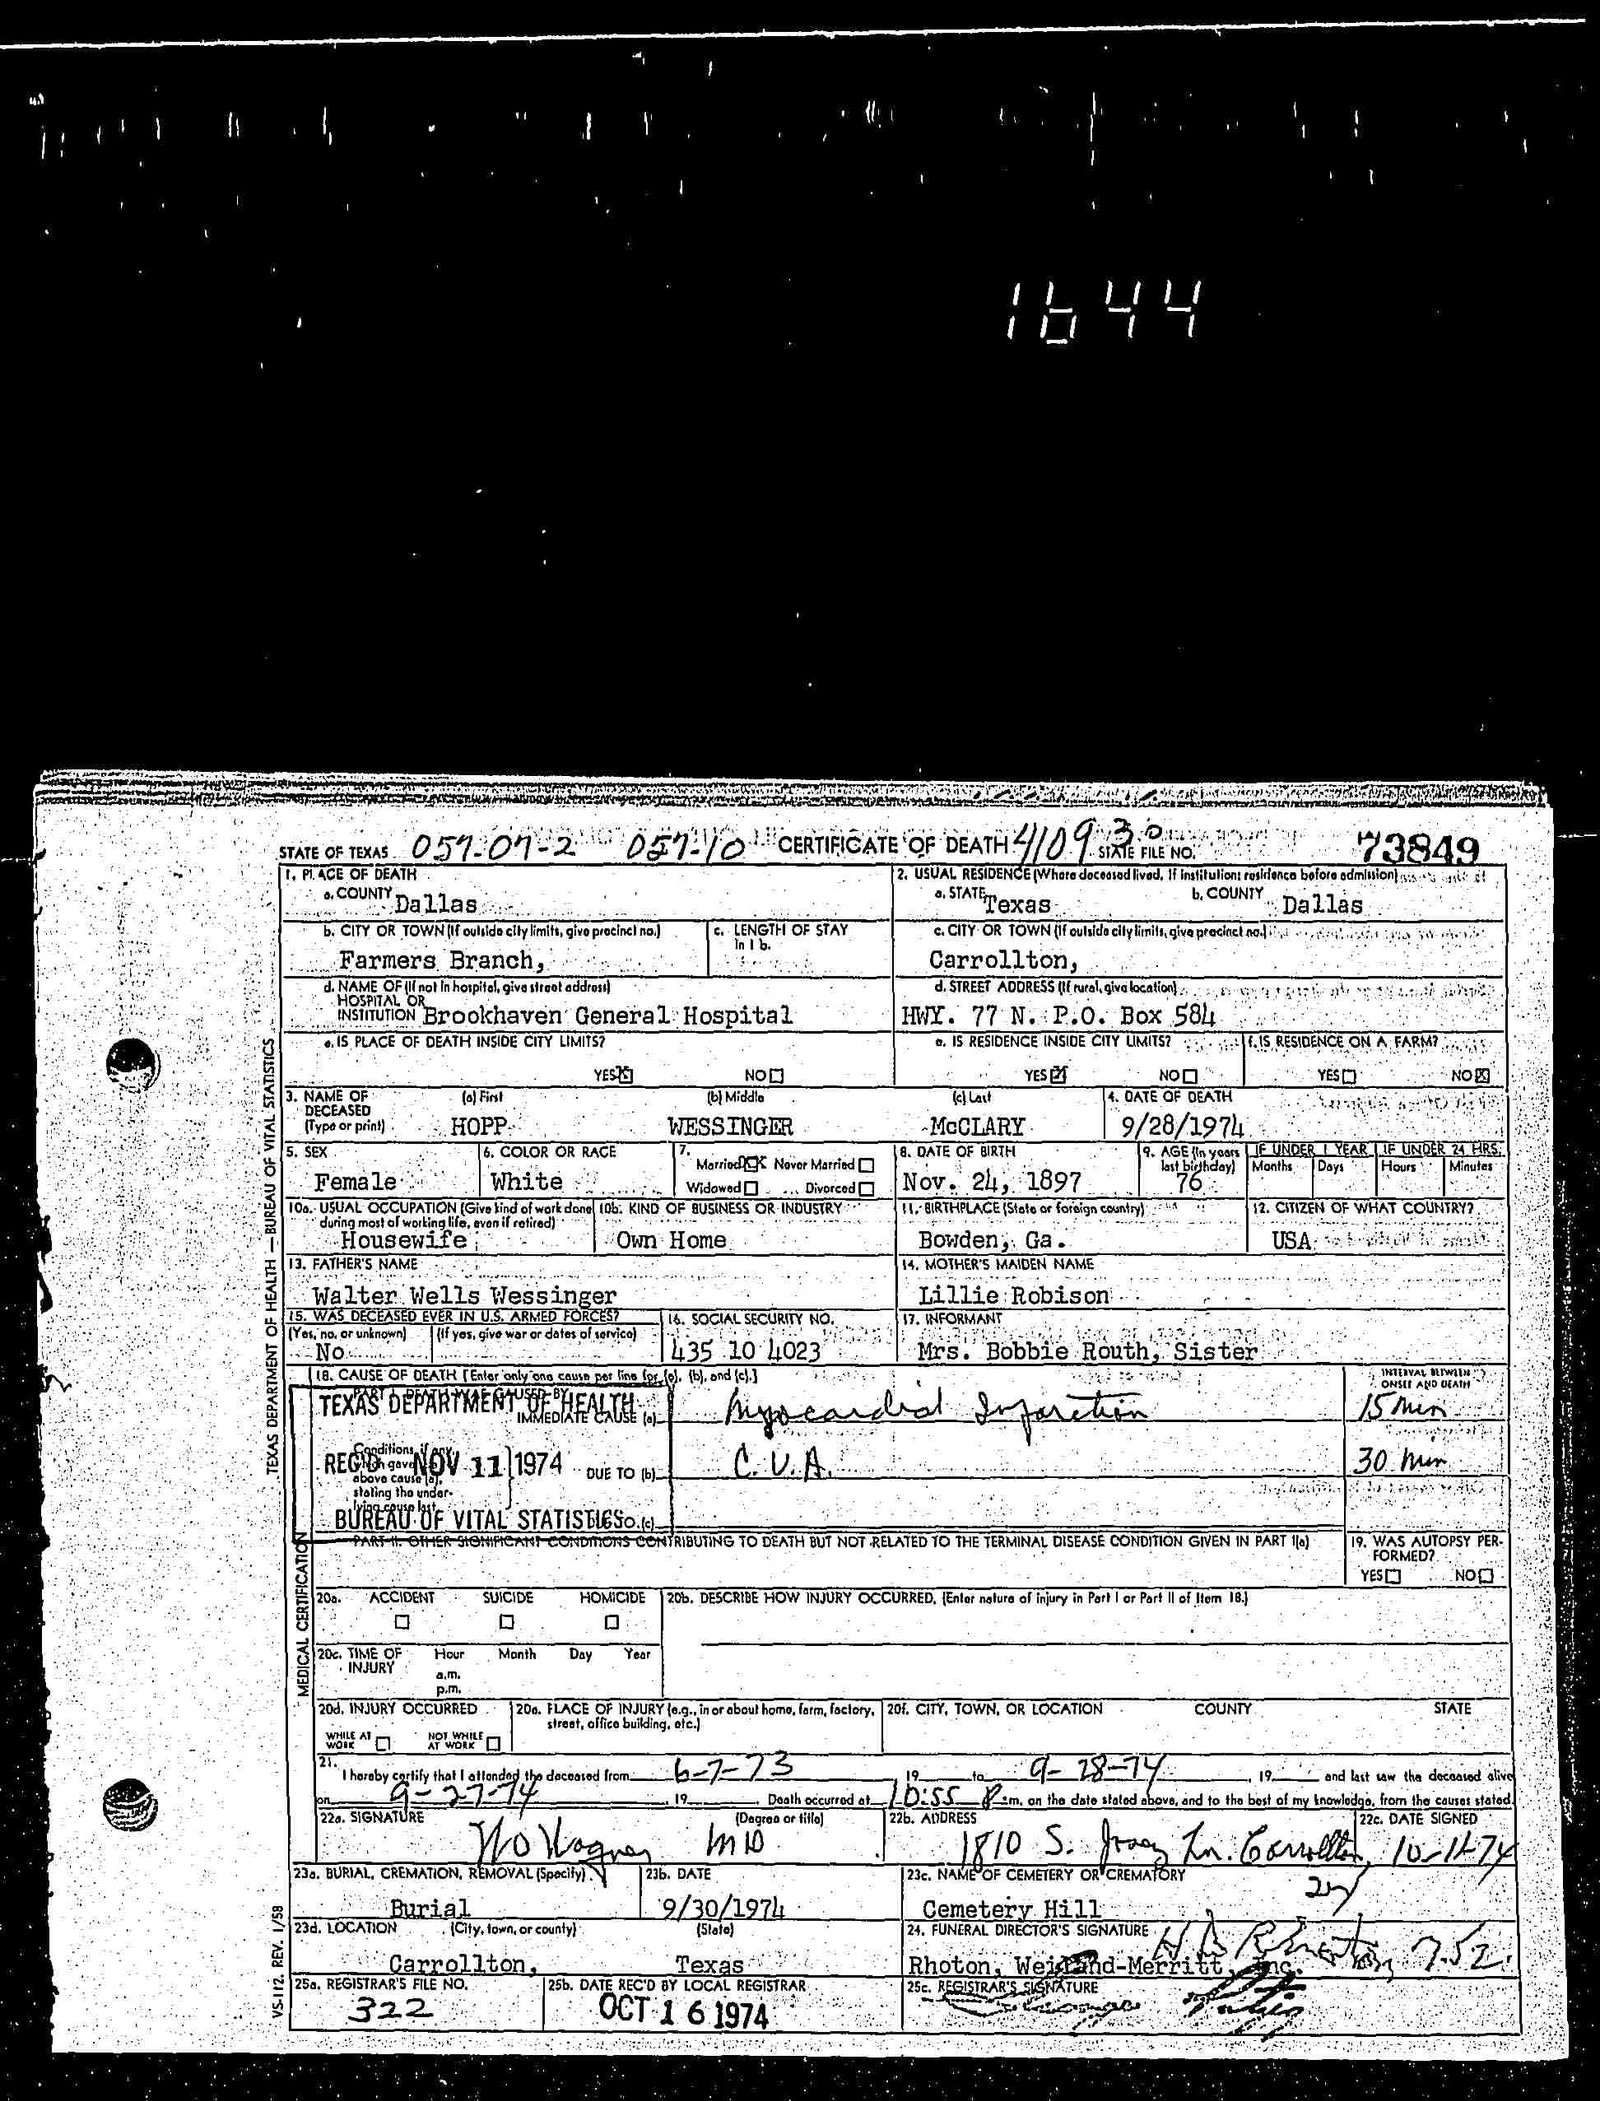 1644
STATE OF TEXAS 057-07-2 057-10 CERTIFICATE OF DEATH 4109 30 STATE FILE NO. 73849
1. PLACE OF DEATH
a. COUNTY Dallas
2. USUAL RESIDENCE (Where deceased lived, If institution: residence before admission)
a. STATE Texas b. COUNTY Dallas
b. CITY OR TOWN (If outside city limits, give precinct no.)
Farmers Branch,
c. LENGTH OF STAY
In 1 b.
c. CITY OR TOWN (If outside city limits, give precinct no.)
Carrollton,
d. NAME OF (If not in hospital, give street address)
HOSPITAL OR
INSTITUTION Brookhaven General Hospital
d. STREET ADDRESS (If rural, give location)
HWY. 77 N. P.O. Box 584
e. IS PLACE OF DEATH INSIDE CITY LIMITS?
YES NO
e. IS RESIDENCE INSIDE CITY LIMITS?
YES NO
f. IS RESIDENCE ON A FARM?
YES NO
3. NAME OF DECEASED (Type or print)
(a) First (b) Middle (c) Last
HOPP WESSINGER McCLARY
4. DATE OF DEATH
9/28/1974
5. SEX
Female
6. COLOR OR RACE
White
7.
Married Never Married
Widowed Divorced
8. DATE OF BIRTH
Nov. 24, 1897
9. AGE (In years last birthday)
76
IF UNDER 1 YEAR
Months Days
IF UNDER 24 HRS.
Hours Minutes
10a. USUAL OCCUPATION (Give kind of work done during most of working life, even if retired)
Housewife
10b. KIND OF BUSINESS OR INDUSTRY
Own Home
11. BIRTHPLACE (State or foreign country)
Bowden, Ga.
12. CITIZEN OF WHAT COUNTRY?
USA
13. FATHER'S NAME
Walter Wells Wessinger
14. MOTHER'S MAIDEN NAME
Lillie Robison
15. WAS DECEASED EVER IN U.S. ARMED FORCES?
(Yes, no, or unknown) (If yes, give war or dates of service)
No
16. SOCIAL SECURITY NO.
435 10 4023
17. INFORMANT
Mrs. Bobbie Routh, Sister
18. CAUSE OF DEATH [Enter only one cause per line for (a), (b), and (c).]
INTERVAL BETWEEN
ONSET AND DEATH
PART I. DEATH WAS CAUSED BY:
TEXAS DEPARTMENT OF HEALTH
IMMEDIATE CAUSE (a) Myocardial Infarction 15 min
Conditions, if any,
which gave
above cause (a),
stating the under-
lying cause last.
REC'D NOV 11 1974
DUE TO (b) C.V.A. 30 min
BUREAU OF VITAL STATISTICS
(c)
PART II. OTHER SIGNIFICANT CONDITIONS CONTRIBUTING TO DEATH BUT NOT RELATED TO THE TERMINAL DISEASE CONDITION GIVEN IN PART I(a)
19. WAS AUTOPSY PER-
FORMED?
YES NO
20a. ACCIDENT SUICIDE HOMICIDE
20b. DESCRIBE HOW INJURY OCCURRED. (Enter nature of injury in Part I or Part II of Item 18.)
20c. TIME OF INJURY Hour Month Day Year
a.m.
p.m.
20d. INJURY OCCURRED
WHILE AT WORK NOT WHILE AT WORK
20e. PLACE OF INJURY (e.g., in or about home, farm, factory, street, office building, etc.)
20f. CITY, TOWN, OR LOCATION COUNTY STATE
21.
I hereby certify that I attended the deceased from 6-7-73 19 to 9-28-74, 19 and last saw the deceased alive
on 9-27-74, 19 . Death occurred at 10:55 P.m. on the date stated above, and to the best of my knowledge, from the causes stated.
22a. SIGNATURE (Degree or title)
MD
22b. ADDRESS
1810 S. Josey Ln. Carrollton,
22c. DATE SIGNED
10-11-74
23a. BURIAL, CREMATION, REMOVAL (Specify)
Burial
23b. DATE
9/30/1974
23c. NAME OF CEMETERY OR CREMATORY
Cemetery Hill
23d. LOCATION (City, town, or county) (State)
Carrollton, Texas
24. FUNERAL DIRECTOR'S SIGNATURE
Rhoton, Weiland-Merritt, Inc. 7252
25a. REGISTRAR'S FILE NO.
322
25b. DATE REC'D BY LOCAL REGISTRAR
OCT 16 1974
25c. REGISTRAR'S SIGNATURE
TEXAS DEPARTMENT OF HEALTH — BUREAU OF VITAL STATISTICS
MEDICAL CERTIFICATION
VS-112. REV. 1/58